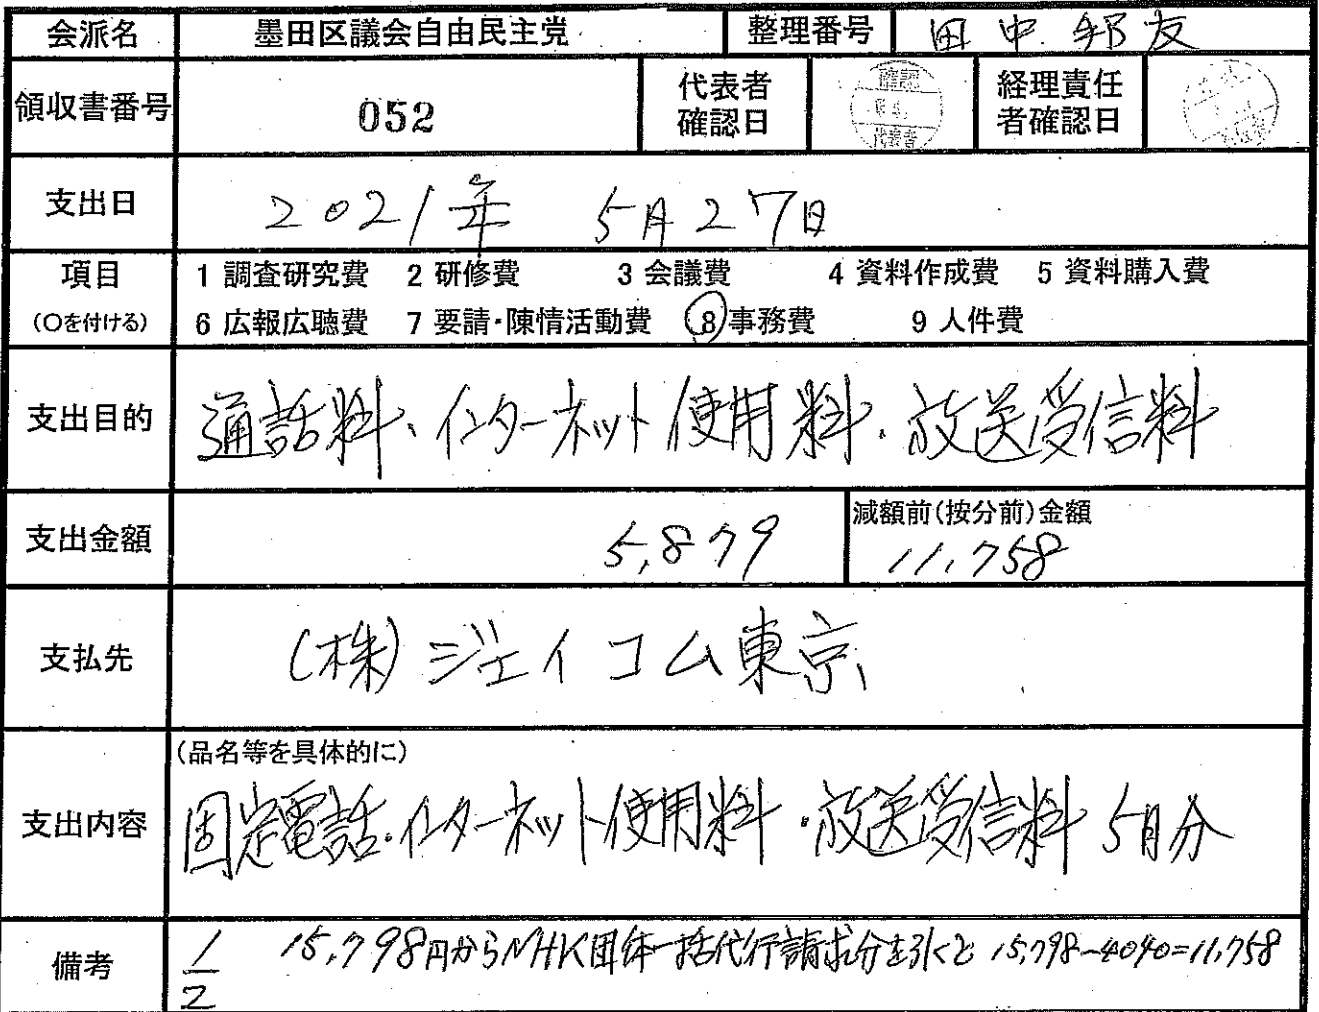 会派名 墨田区議会自由民主党 整理番号 田中邦友
領収書番号 052 代表者確認日 確認 代表者 経理責任者確認日
支出日 2021年 5月27日
項目 1 調査研究費 2 研修費 3 会議費 4 資料作成費 5 資料購入費
(○を付ける) 6 広報広聴費 7 要請・陳情活動費 8 事務費 9 人件費
支出目的 通話料、インターネット使用料、放送受信料
支出金額 5,879 減額前(按分前)金額 11,758
支払先 (株)ジェイコム東京
支出内容 (品名等を具体的に)
固定電話・インターネット使用料・放送受信料 5月分
備考 1/2 15,798円からNHK団体一括代行請求分を引くと 15,798-4040=11,758